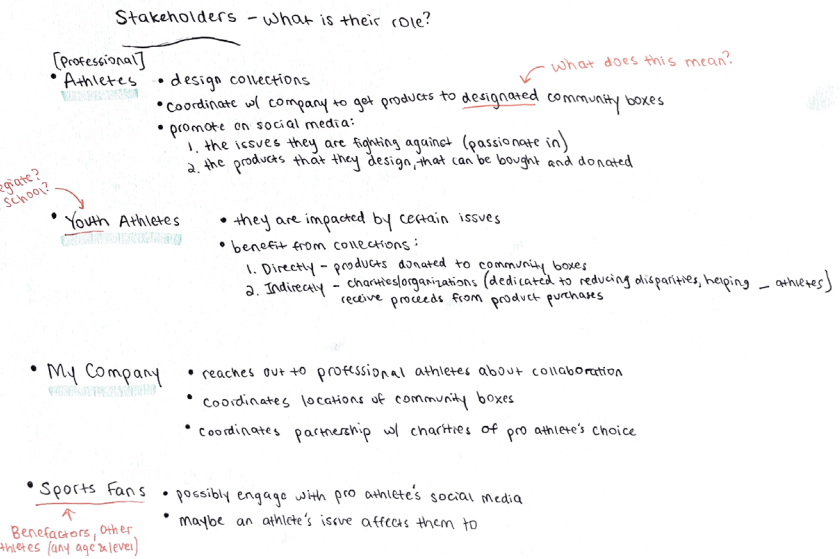 Stakeholders - What is their role?
[Professional]
• Athletes
• design collections
What does this mean?
• coordinate w/ company to get products to designated community boxes
• promote on social media:
1. the issues they are fighting against (passionate in)
2. the products that they design, that can be bought and donated
egiate?
school?
• Youth Athletes
• they are impacted by certain issues
• benefit from collections:
1. Directly - products donated to community boxes
2. Indirectly - charities/organizations (dedicated to reducing disparities, helping _ athletes)
receive proceeds from product purchases
• My Company
• reaches out to professional athletes about collaboration
• coordinates locations of community boxes
• coordinates partnership w/ charities of pro athlete's choice
• Sports Fans
• possibly engage with pro athlete's social media
• maybe an athlete's issue affects them to
Benefactors, Other
thletes (any age & level)